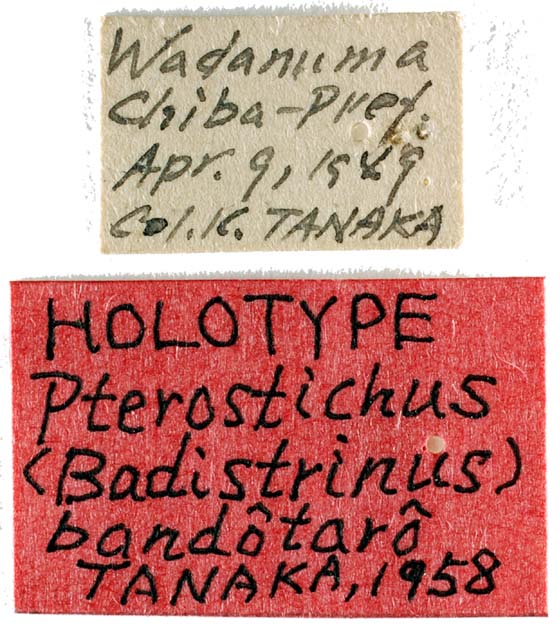 Wadanuma
Chiba-Pref.
Apr. 9, 1949
Col. K. TANAKA
HOLOTYPE
Pterostichus
(Badistrinus)
bandôtarô
TANAKA, 1958